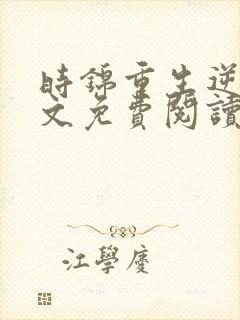 時錦重生逆
文免費閱讀
江學慶